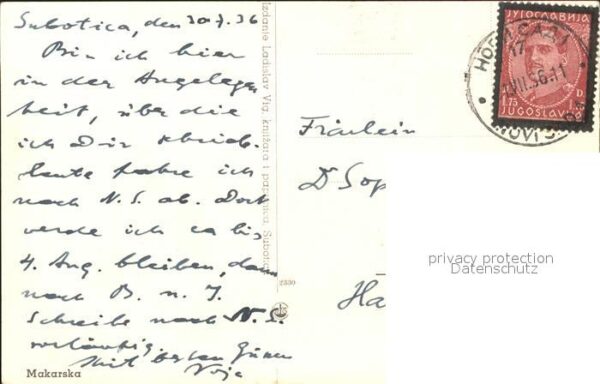 Subotica, den 30.7.36
Bin ich hier
in der Angelegen
heit, über die
ich Dir schrieb.
Heute fahre ich
nach N.S. ab. Dort
werde ich ca bis
4. Aug. bleiben, dann
nach B. n. J.
Schreibe nach N.S.
vorläufig.
Mit besten Grüßen
Voja
Makarska
Izdanje Ladislav Vig knjižara i papirnica, Subotica
7330
ЈУГОСЛАВИЈА
1.75 D.
JUGOSLAVIJA
НОВИ САД 1
17
VII.36.11
NOVI SAD
Fräulein
D Sop
Ha
privacy protection
Datenschutz